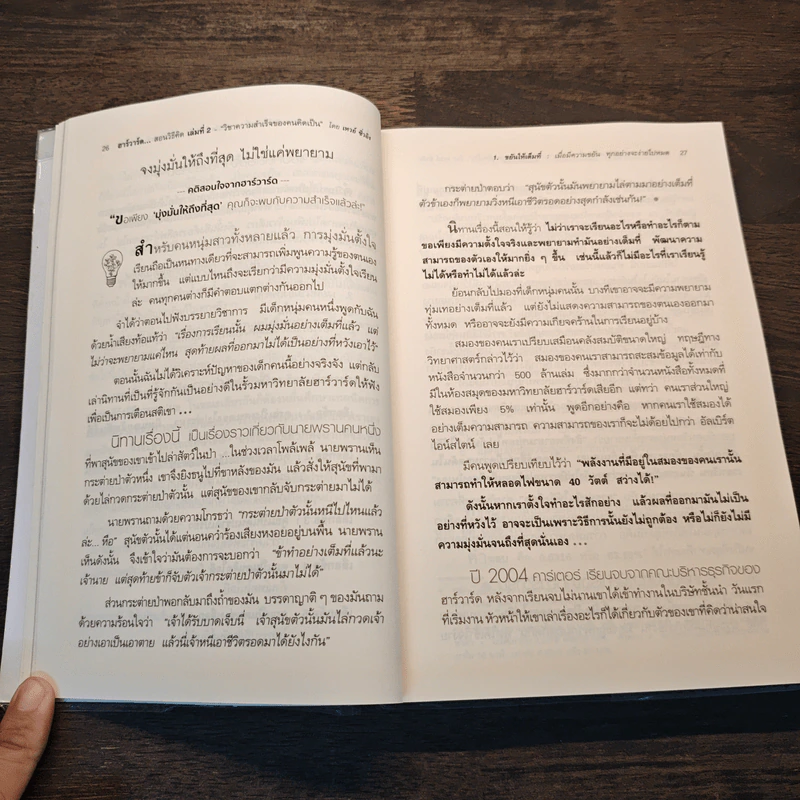 26 ฮาร์วาร์ด... สอนวิธีคิด เล่มที่ 2 – "วิชาความสำเร็จของคนคิดเป็น" โดย
จงมุ่งมั่นให้ถึงที่สุด ไม่ใช่แค่พยายาม
--- คติสอนใจจากฮาร์วาร์ด ---
"ขอเพียง 'มุ่งมั่นให้ถึงที่สุด' คุณก็จะพบกับความสำเร็จแล้วล่ะ!"
สำหรับคนหนุ่มสาวทั้งหลายแล้ว การมุ่งมั่นตั้งใจ
เรียนถือเป็นหนทางเดียวที่จะสามารถเพิ่มพูนความรู้ของตนเอง
ให้มากขึ้น แต่แบบไหนถึงจะเรียกว่ามีความมุ่งมั่นตั้งใจเรียน
ล่ะ คนทุกคนต่างก็มีคำตอบแตกต่างกันออกไป
จำได้ว่าตอนไปฟังบรรยายวิชาการ มีเด็กหนุ่มคนหนึ่งพูดกับฉัน
ด้วยน้ำเสียงท้อแท้ว่า "เรื่องการเรียนนั้น ผมมุ่งมั่นอย่างเต็มที่แล้ว แต่
ไม่ว่าจะพยายามแค่ไหน สุดท้ายผลที่ออกมาไม่ได้เป็นอย่างที่หวังเอาไว้"
ตอนนั้นฉันไม่ได้วิเคราะห์ปัญหาของเด็กคนนี้อย่างจริงจัง แต่กลับ
เล่านิทานที่เป็นที่รู้จักกันเป็นอย่างดีในรั้วมหาวิทยาลัยฮาร์วาร์ดให้ฟัง
เพื่อเป็นการเตือนสติเขา ...
นิทานเรื่องนี้ เป็นเรื่องราวเกี่ยวกับนายพรานคนหนึ่ง
ที่พาสุนัขของเขาเข้าไปล่าสัตว์ในป่า ...ในช่วงเวลาโพล้เพล้ นายพรานเห็น
กระต่ายป่าตัวหนึ่ง เขาจึงยิงธนูไปที่ขาหลังของมัน แล้วสั่งให้สุนัขที่พามา
ด้วยไล่กวดกระต่ายป่าตัวนั้น แต่สุนัขของเขากลับจับกระต่ายมาไม่ได้
นายพรานถามด้วยความโกรธว่า "กระต่ายป่าตัวนั้นหนีไปไหนแล้ว
ล่ะ...หือ" สุนัขตัวนั้นได้แต่นอนคว่ำร้องเสียงหงอยอยู่บนพื้น นายพราน
เห็นดังนั้น จึงเข้าใจว่ามันต้องการจะบอกว่า "ข้าทำอย่างเต็มที่แล้วนะ
เจ้านาย แต่สุดท้ายข้าก็จับตัวเจ้ากระต่ายป่าตัวนั้นมาไม่ได้"
ส่วนกระต่ายป่าพอกลับมาถึงถ้ำของมัน บรรดาญาติ ๆ ของมันถาม
ด้วยความร้อนใจว่า "เจ้าได้รับบาดเจ็บนี่ เจ้าสุนัขตัวนั้นมันไล่กวดเจ้า
อย่างเอาเป็นเอาตาย แล้วนี่เจ้าหนีเอาชีวิตรอดมาได้ยังไงกัน"
1. ขยันให้เต็มที่ : เมื่อมีความขยัน ทุกอย่างจะง่ายไปหมด 27
กระต่ายป่าตอบว่า "สุนัขตัวนั้นมันพยายามไล่ตามมาอย่างเต็มที่
ตัวข้าเองก็พยายามวิ่งหนีเอาชีวิตรอดอย่างสุดกำลังเช่นกัน!"
นิทานเรื่องนี้สอนให้รู้ว่า ไม่ว่าเราจะเรียนอะไรหรือทำอะไรก็ตาม
ขอเพียงมีความตั้งใจจริงและพยายามทำมันอย่างเต็มที่ พัฒนาความ
สามารถของตัวเองให้มากยิ่ง ๆ ขึ้น เช่นนี้แล้วก็ไม่มีอะไรที่เราเรียนรู้
ไม่ได้หรือทำไม่ได้แล้วล่ะ
ย้อนกลับไปมองที่เด็กหนุ่มคนนั้น บางทีเขาอาจจะมีความพยายาม
ทุ่มเทอย่างเต็มที่แล้ว แต่ยังไม่แสดงความสามารถของตนเองออกมา
ทั้งหมด หรืออาจจะยังมีความเกียจคร้านในการเรียนอยู่บ้าง
สมองของคนเราเปรียบเสมือนคลังสมบัติขนาดใหญ่ ทฤษฎีทาง
วิทยาศาสตร์กล่าวไว้ว่า สมองของคนเราสามารถสะสมข้อมูลได้เท่ากับ
หนังสือจำนวนกว่า 500 ล้านเล่ม ซึ่งมากกว่าจำนวนหนังสือทั้งหมดที่
มีในห้องสมุดของมหาวิทยาลัยฮาร์วาร์ดเสียอีก แต่ทว่า คนเราส่วนใหญ่
ใช้สมองเพียง 5% เท่านั้น พูดอีกอย่างคือ หากคนเราใช้สมองได้
อย่างเต็มความสามารถ ความสามารถของเราก็จะไม่ด้อยไปกว่า อัลเบิร์ต
ไอน์สไตน์ เลย
มีคนพูดเปรียบเทียบไว้ว่า "พลังงานที่มีอยู่ในสมองของคนเรานั้น
สามารถทำให้หลอดไฟขนาด 40 วัตต์ สว่างได้!"
ดังนั้นหากเราตั้งใจทำอะไรสักอย่าง แล้วผลที่ออกมามันไม่เป็น
อย่างที่หวังไว้ อาจจะเป็นเพราะวิธีการนั้นยังไม่ถูกต้อง หรือไม่ก็ยังไม่มี
ความมุ่งมั่นจนถึงที่สุดนั่นเอง ...
ปี 2004 คาร์เตอร์ เรียนจบจากคณะบริหารธุรกิจของ
ฮาร์วาร์ด หลังจากเรียนจบไม่นานเขาได้เข้าทำงานในบริษัทชั้นนำ วันแรก
ที่เริ่มงาน หัวหน้าให้เขาเล่าเรื่องอะไรก็ได้เกี่ยวกับตัวของเขาที่คิดว่าน่าสนใจ